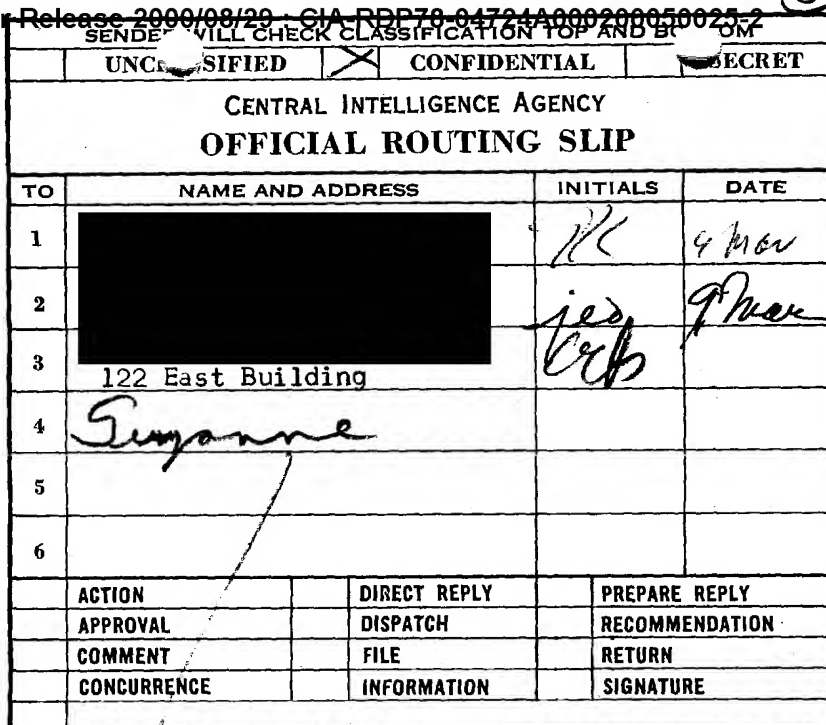 Release 2000/08/29 : CIA-RDP78-04724A000200050025-2
SENDER WILL CHECK CLASSIFICATION TOP AND BOTTOM
UNCLASSIFIED CONFIDENTIAL SECRET
CENTRAL INTELLIGENCE AGENCY
OFFICIAL ROUTING SLIP
TO NAME AND ADDRESS INITIALS DATE
1 9 Mar
2 jeo 9 Mar
3 122 East Building
4 Suzanne
5
6
ACTION DIRECT REPLY PREPARE REPLY
APPROVAL DISPATCH RECOMMENDATION
COMMENT FILE RETURN
CONCURRENCE INFORMATION SIGNATURE